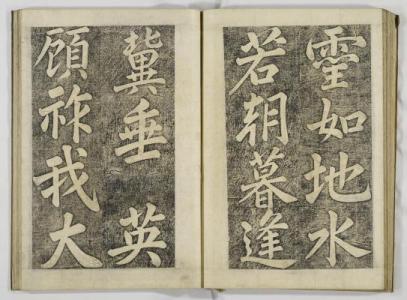 霊如地水
若朝暮逢
冀垂 英
顧祚我大